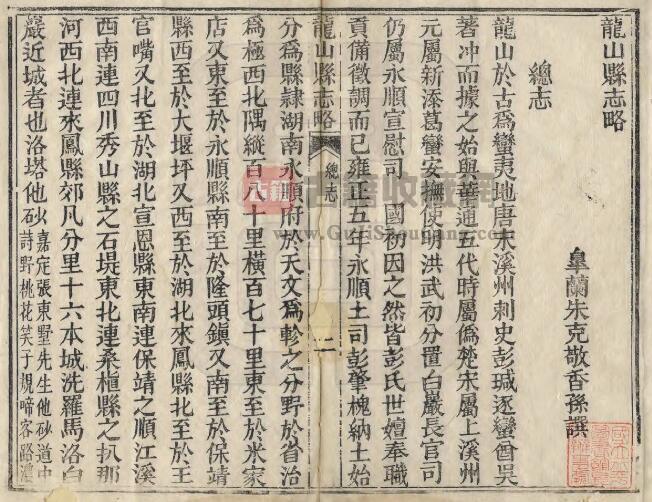 龍山縣志略
皐蘭朱克敬香孫譔
總志
龍山於古爲蠻夷地唐末溪州刺史彭瑊逐蠻酋吳
著冲而據之始與華通五代時屬僞楚宋屬上溪州
元屬新添葛蠻安撫使明洪武初分置白巖長官司
仍屬永順宣慰司 國初因之然皆彭氏世嬗奉職
貢備徵調而已雍正五年永順土司彭肇槐納土始
龍山縣志略 總志 一
分爲縣隷湖南永順府於天文爲軫之分野於省治
爲極西北隅縱百八十里橫百七十里東至於米家
店又東至於永順縣南至於隆頭鎭又南至於保靖
縣西至於大堰坪又西至於湖北來鳳縣北至於王
官嘴又北至於湖北宣恩縣東南連保靖之順江溪
西南連四川秀山縣之石堤東北連桑植縣之扒那
河西北連來鳳縣郊凡分里十六本城洗羅馬洛白
巖近城者也洛塔他砂嘉定張東墅先生他砂道中
詩野桃花笑子規啼客路濃
古籍收藏網
www.GuJiShouCang.com